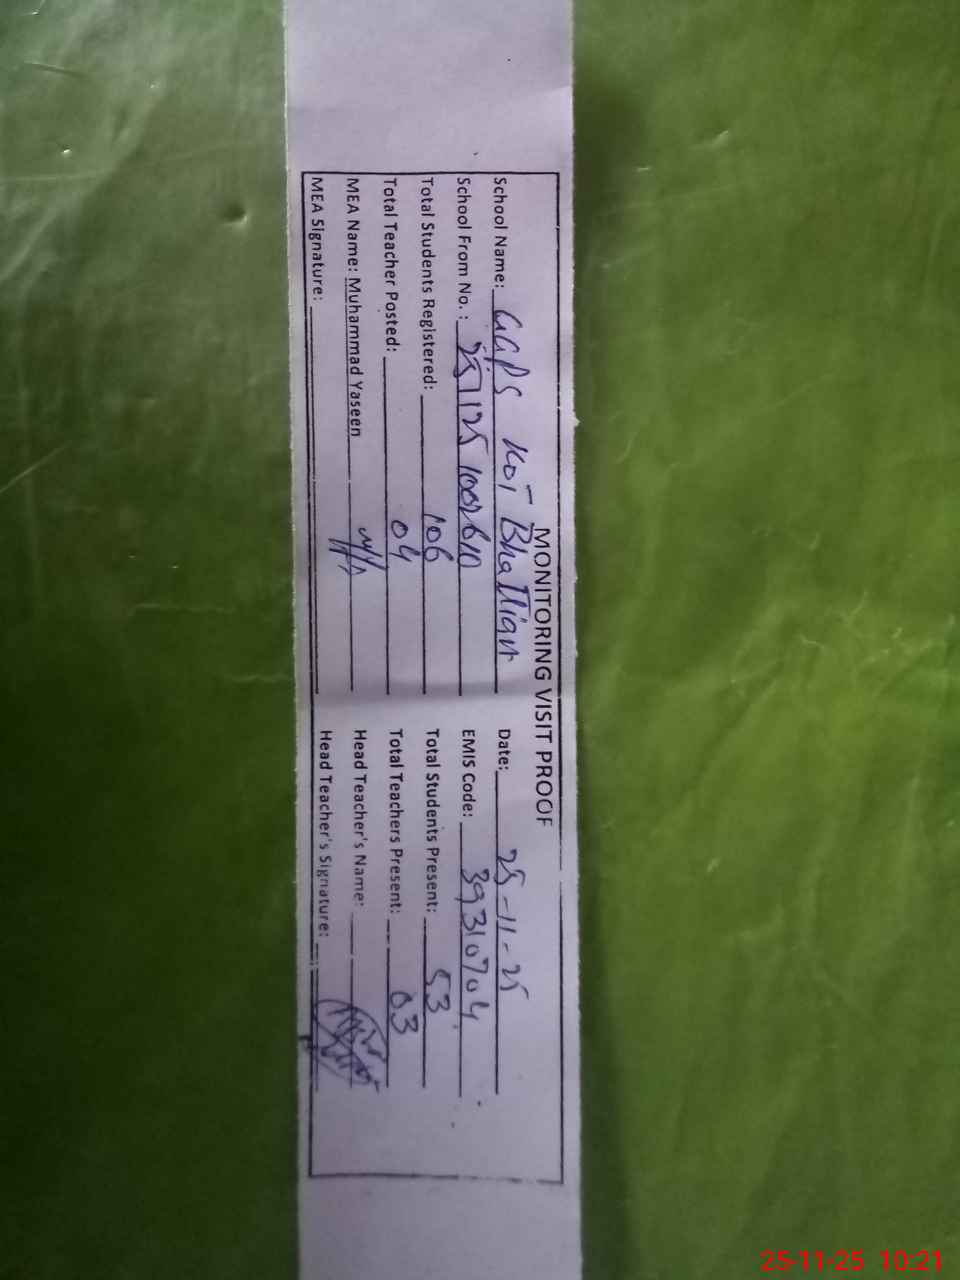 MONITORING VISIT PROOF
School Name: GGPS Kot Bhattian Date: 25-11-25
School From No.: 251125 1002610 EMIS Code: 39310704
Total Students Registered: 106 Total Students Present: 53
Total Teacher Posted: 04 Total Teachers Present: 03
MEA Name: Muhammad Yaseen Head Teacher's Name:
MEA Signature: Head Teacher's Signature:
25-11-25 10:21